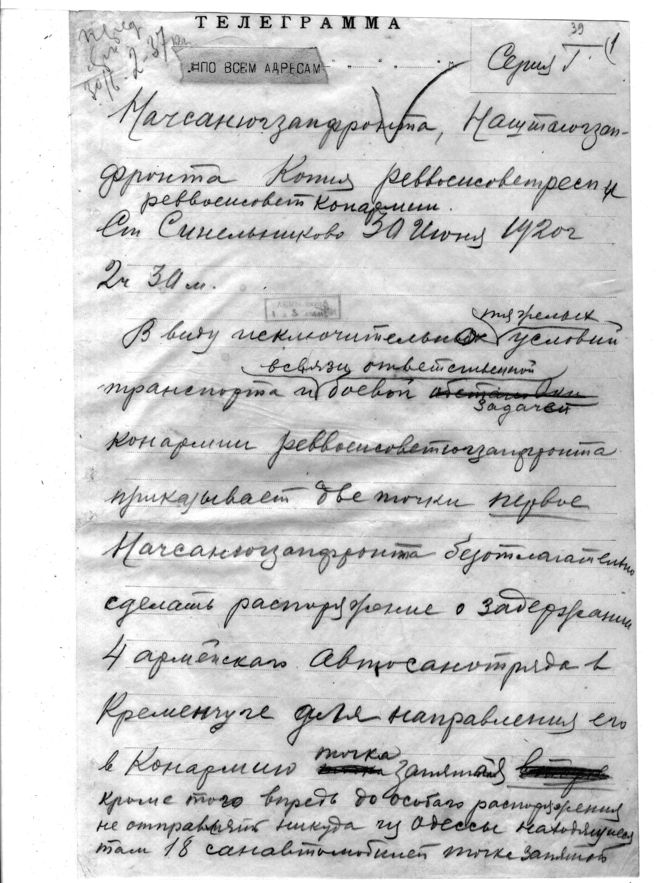 ТЕЛЕГРАММА
39
НПО ВСЕМ АДРЕСАМ
Серия Г.
Начсанюгзапфронта, Наштаюгзап-
фронта Копия реввоенсоветресп
реввоенсовет Конармии.
Ст Синельниково 30 Июня 1920г
2ч 30м.
тяжелых
В виду исключительно условий
всвязи ответственной
транспорта и боевой обстановки
задачей
конармии реввоенсоветюгзапфронта
приказывает две точки первое
Начсанюгзапфронта безотлагательно
сделать распоряжение о задержании
4 армейского Автосанотряда в
Кременчуге для направления его
точка
в Конармию запятая
кроме того впредь до особого распоряжения
не отправлять никуда из Одессы находящиеся
там 18 санавтомобилей точка запятой